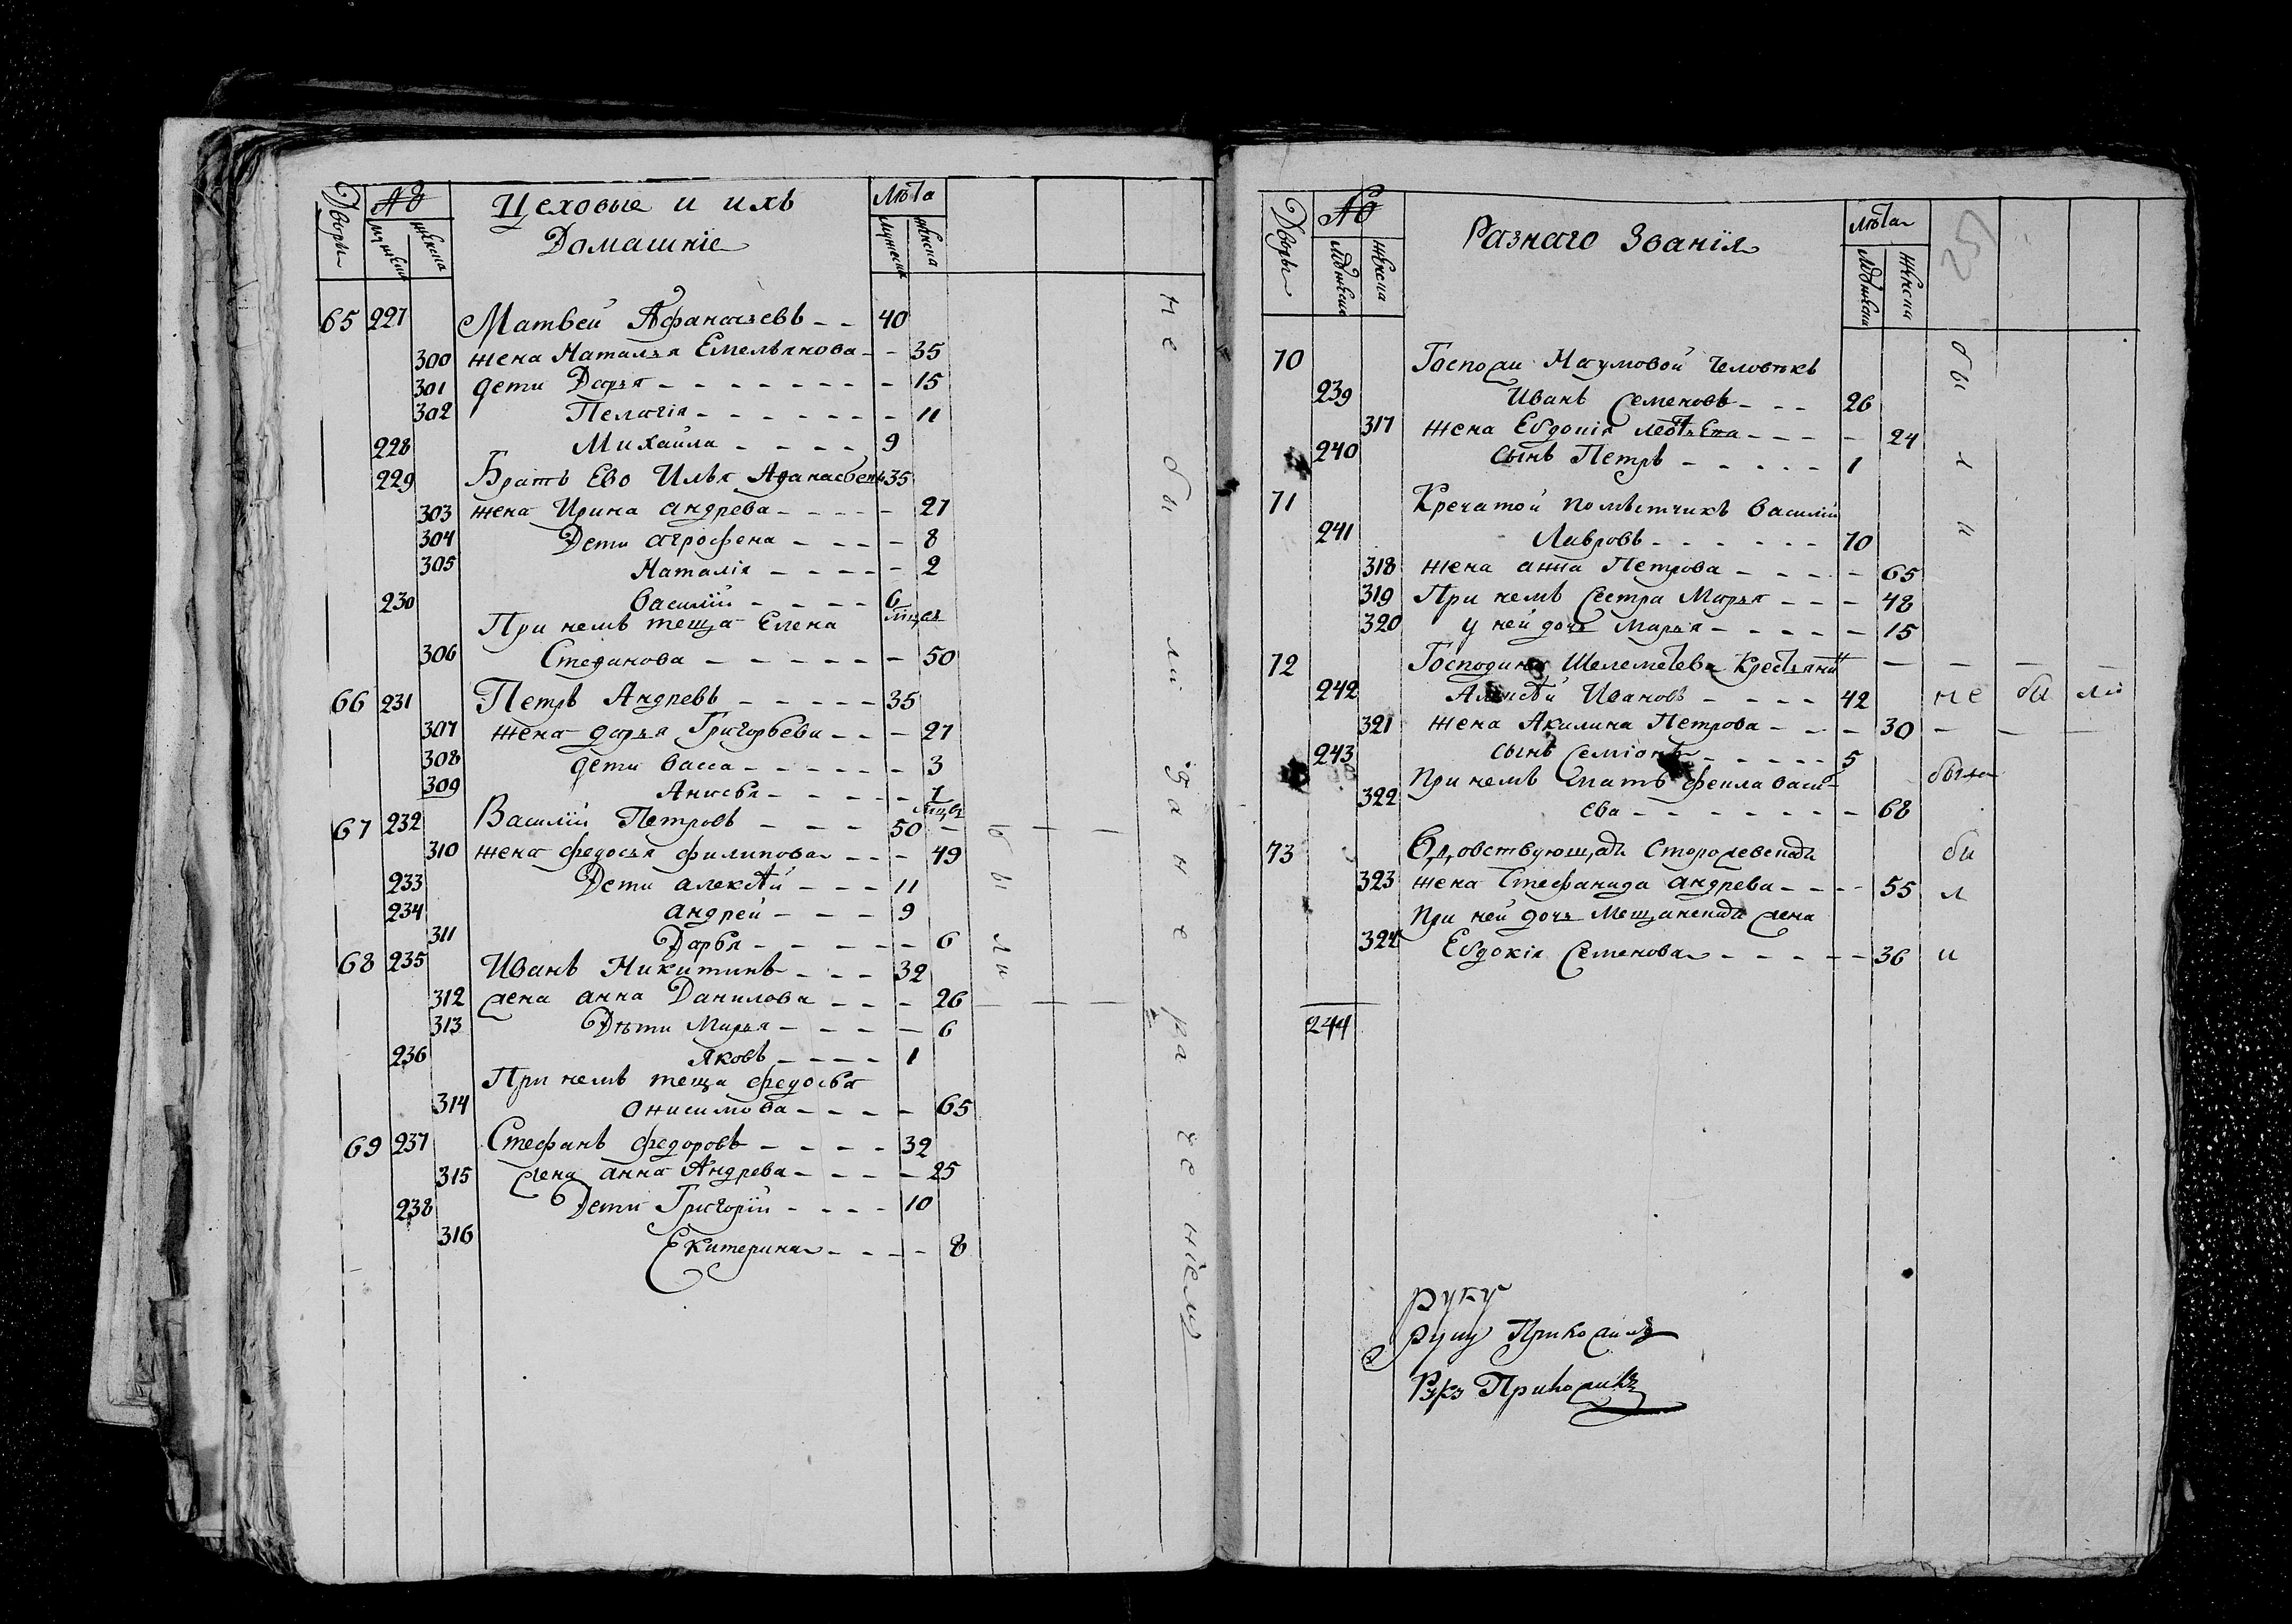 Дворы № мужеска женска Цеховые и ихъ Домашніе Лѣта мужеска женска
65 227 Матвей Афанасьевъ 40
300 жена Наталья Емельянова 35
301 дети Дарья 15
302 Пелагія 11
228 Михайла 9
229 Братъ Ево Илья Афанасьевъ 35
303 жена Ирина андрева 27
304 Дети агрофена 8
305 Наталія 2
230 Василіи 6 мцовъ
При немъ теща Елена
306 Стефанова 50
66 231 Петръ Андревъ 35
307 жена дарья Григорьева 27
308 дети Васса 3
309 Анисья 1 мцъ
67 232 Василіи Петровъ 50
310 жена федосья филипова 49
233 Дети алексѣй 11
234 андрей 9
311 Дарья 6
68 235 Иванъ Никитинъ 32
312 жена анна Данилова 26
313 Дѣти Марья 6
236 Яковъ 1
При немъ теща федосья
314 Онисимова 65
69 237 Стефанъ федоровъ 32
315 жена анна Андрева 25
238 Дети Григоріи 10
316 Екатерина 8
не были
были
Дворы № женска Разнаго Званія Лѣта женска
70 Госпожи Наумовой человѣкъ
239 Иванъ Семеновъ 26
317 жена Евдокія 24
240 сынъ Петръ 1
были
71 помѣтчикъ Василіи
241 Лавровъ 70
318 жена анна Петрова 65
319 При немъ Сестра Марья 48
320 у ней дочь Марья 15
72 Господина Шелеметева Крестьянинъ
242 Алексѣй Ивановъ 42 не были
321 жена Акилина Петрова 30
243 сынъ Семіонъ 5
322 При немъ мать фекла Васи
ева 68
была
73 Вдовствующая
323 жена Стефанида андрева 55
При ней дочь Мещанская жена
324 Евдокія Семенова 36
были
244
руку
руку Приложилъ
Руку Приложилъ